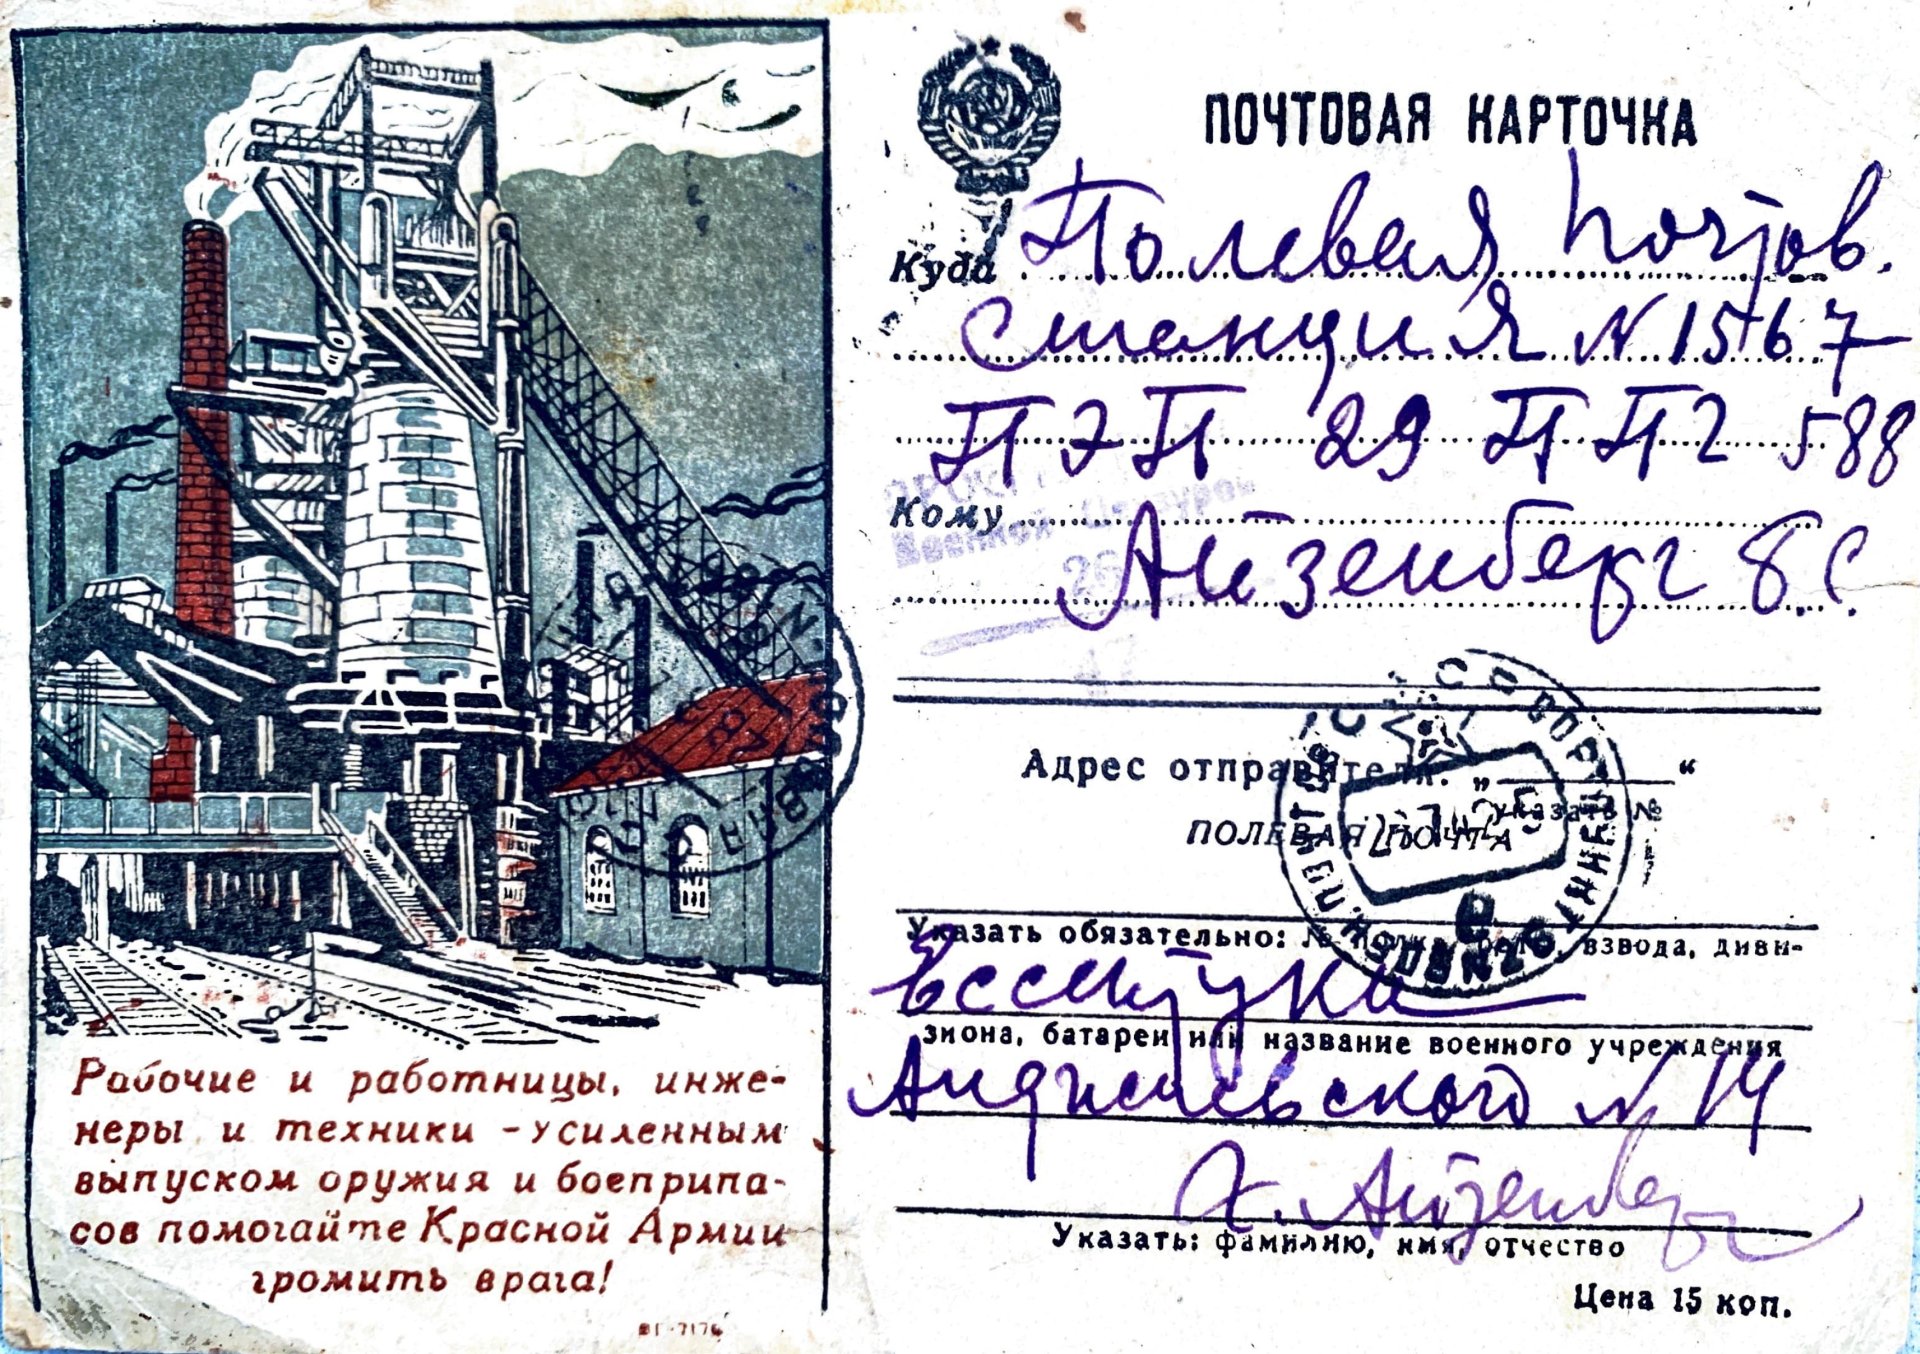 Рабочие и работницы, инже-
неры и техники - усиленным
выпуском оружия и боеприпа-
сов помогайте Красной Армии
громить врага!
ВГ-7174
ПОЧТОВАЯ КАРТОЧКА
Куда Полевая почтов.
станция N 1567
ПЭП 29 ППГ 588
Кому
Айзенберг В.С.
Военной Цензурой
Адрес отправителя: „ “
указать №
ПОЛЕВАЯ ПОЧТА
Указать обязательно: № взвода, диви-
Ессентуки
зиона, батареи или название военного учреждения
Анджиевского N 14
Х. Айзенберг
Указать: фамилию, имя, отчество
Цена 15 коп.